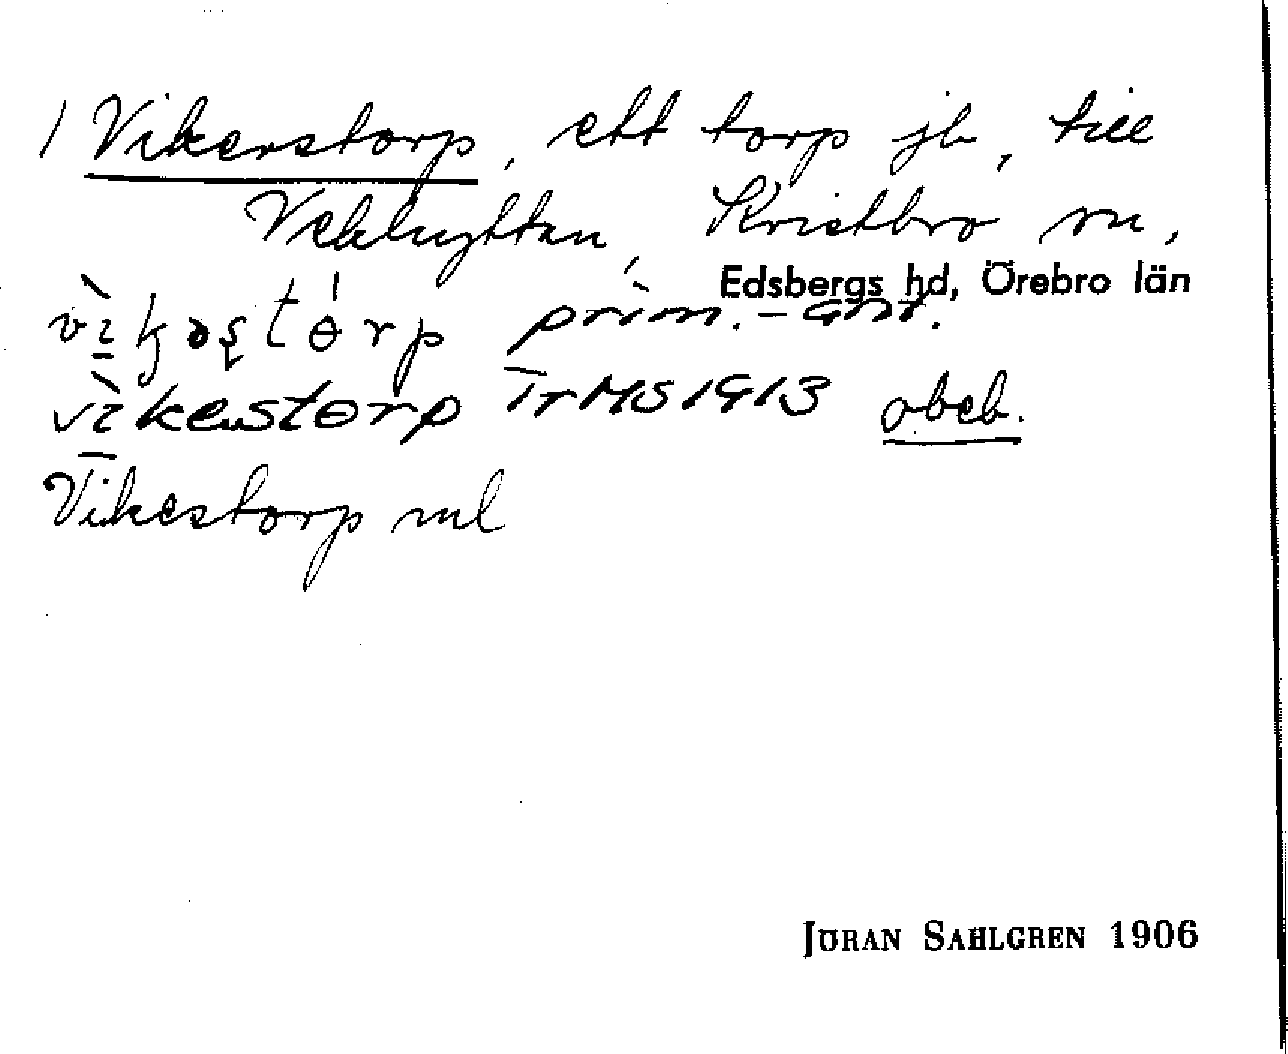 1 Vikerstorp, ett torp jb, till
Vekhyttan, Kvistbro sn,
Edsbergs hd, Örebro län
prim.-ant.
vikenstorp TrMS1913 obeb.
Vikestorp ml
JÖRAN SAHLGREN 1906